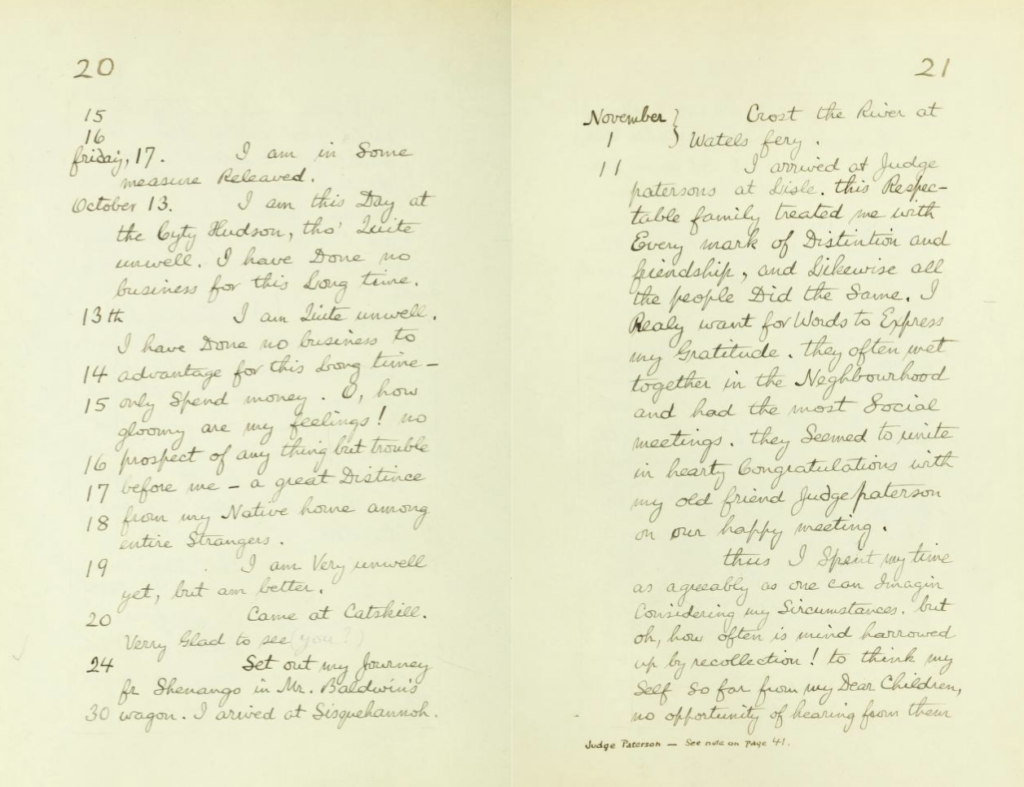 20
15
16
friday, 17. I am in Some
measure Releaved.
October 13. I am this Day at
the Cyty Hudson, tho' Quite
unwell. I have Done no
business for this Long time.
13th I am Quite unwell.
I have Done no business to
14 advantage for this Long time –
15 only Spend money. O, how
gloomy are my feelings! no
16 prospect of any thing but trouble
17 before me – a great Distince
18 from my Native home among
entire Strangers.
19 I am Very unwell
yet, but am better.
20 Came at Catskill.
Verry Glad to see (you?)
24 Set out my Journey
fr Shenango in Mr. Baldwin's
30 wagon. I arived at Sisquehannoh.
21
November } Crost the River at
1 } Watels fery.
11 I arrived at Judge
patersons at Lisle. this Respec-
table family treated me with
Every mark of Distintion and
friendship, and Likewise all
the people Did the Same. I
Realy want for Words to Express
my Gratitude. they often met
together in the Neghbourhood
and had the most Social
meetings. they Seemed to unite
in hearty Congratulations with
my old friend Judge paterson
on our happy meeting.
thus I Spent my time
as agreeably as one can Imagin
Considering my Sircumstances. but
oh, how often is mind harrowed
up by recollection! to think my
Self So far from my Dear Children,
no opportunity of hearing from them
Judge Paterson – See note on page 41.